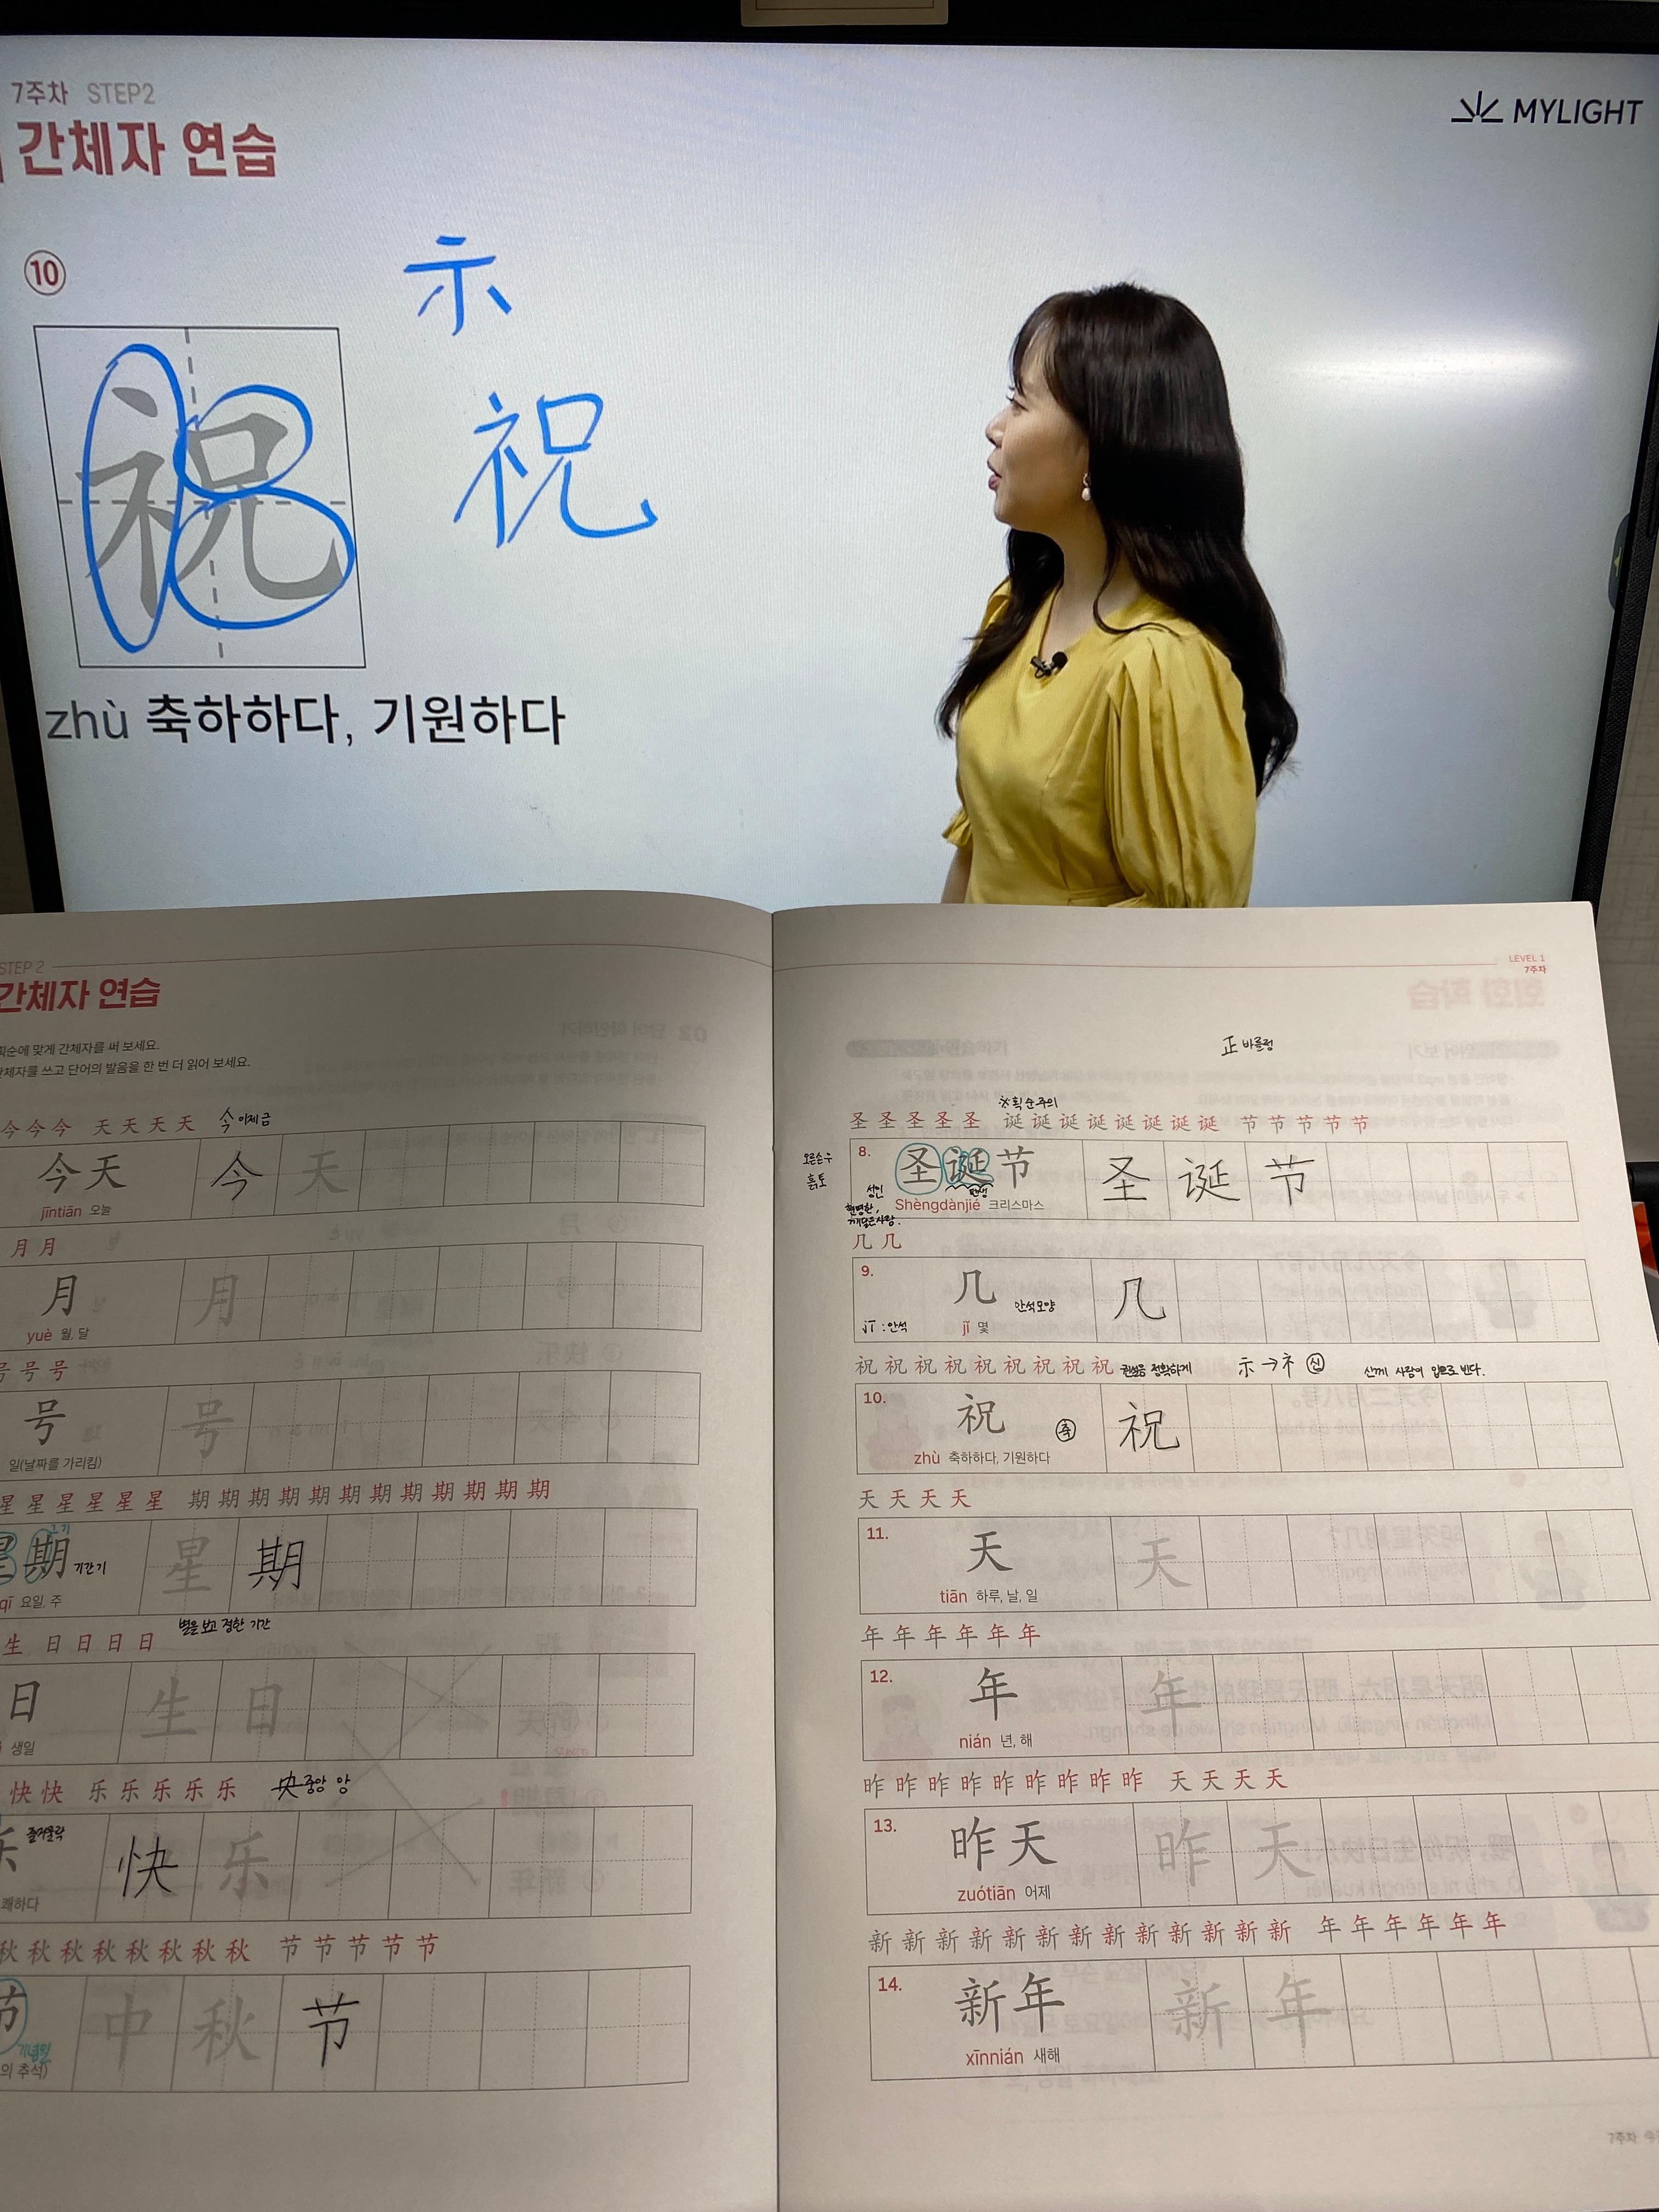 7주차 STEP2
MYLIGHT
간체자 연습
⑩
示
祝 祝
zhù 축하하다, 기원하다
STEP 2
간체자 연습
획순에 맞게 간체자를 써 보세요.
간체자를 쓰고 단어의 발음을 한 번 더 읽어 보세요.
今 今 今 天 天 天 天 今 이제 금
今天 今 天
jīntiān 오늘
月 月
月 月
yuè 월, 달
号 号 号
号 号
일(날짜를 가리킴)
星 星 星 星 星 星 期 期 期 期 期 期 期 期 期 期 期 期
星期 기간 기 星 期
qī 요일, 주
生 日 日 日 日 별을 보고 정한 기간
日 生 日
생일
快 快 乐 乐 乐 乐 乐 央 중앙 앙
乐 즐거울 락 快 乐
쾌하다
秋 秋 秋 秋 秋 秋 秋 秋 节 节 节 节 节
节 中 秋 节
기념일
의 추석)
LEVEL 1
7주차
正 바를 정
※획순 주의
圣 圣 圣 圣 圣 诞 诞 诞 诞 诞 诞 诞 诞 节 节 节 节 节
오른손 우
흙 토
8. 圣诞节 圣 诞 节
성인 탄생
Shèngdànjié 크리스마스
현명한,
깨달은 사람.
几 几
9. 几 안석 모양 几
jī : 안석 jǐ 몇
祝 祝 祝 祝 祝 祝 祝 祝 祝 권설음 정확하게 示→礻 신 신께 사람이 입으로 빈다.
10. 祝 축 祝
zhù 축하하다, 기원하다
天 天 天 天
11. 天 天
tiān 하루, 날, 일
年 年 年 年 年 年
12. 年 年
nián 년, 해
昨 昨 昨 昨 昨 昨 昨 昨 昨 天 天 天 天
13. 昨天 昨 天
zuótiān 어제
新 新 新 新 新 新 新 新 新 新 新 新 新 年 年 年 年 年 年
14. 新年 新 年
xīnnián 새해
7주차